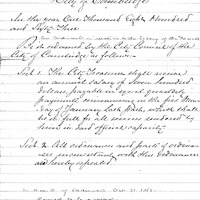 City of Cambridge
In the year One Thousand Eight Hundred
and Fifty Three
An Ordinance in relation to the Salary of the
Be it ordained by the City Council of the
City of Cambridge as follows:
Sect. 1. The City Treasurer shall receive
an annual salary of Seven hundred
dollars, payable in equal quarterly
payments, commencing on the first Monday
of January last past, which shall
be in full for all services rendered by
him in his official capacity.
Sect. 2. All ordinances and parts of ordinan-
ces inconsistent with this Ordinance
are hereby repealed.